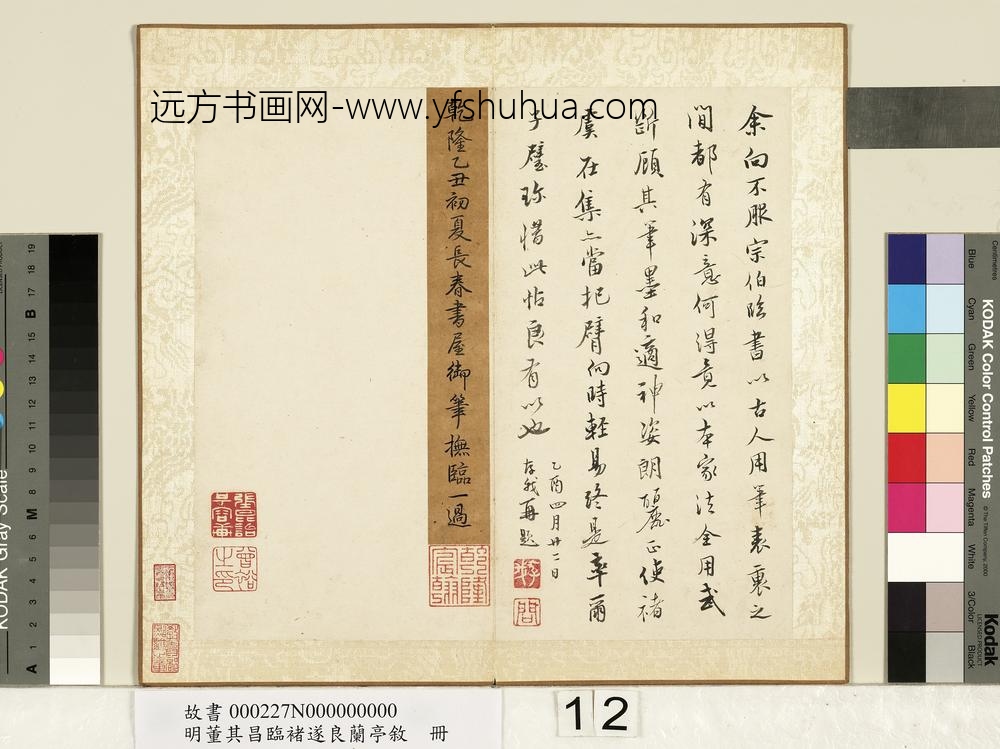 远方书画网-www.yfshuhua.com
余向不服宗伯臨書以古人用筆表裏之
間都有深意何得竟以本家法全用武
斷顧其筆墨和適神姿朗麗正使褚
虞在集亦當把臂向時輕易終是率爾
子璧珎惜此帖良有以也
乙酉四月廿二日
存我再題
乾隆乙丑初夏長春書屋御筆撫臨一過
乾隆宸翰
故書 000227N000000000
明董其昌臨褚遂良蘭亭敘 冊
12
KODAK Color Control Patches
Blue
Cyan
Green
Yellow
Red
Magenta
White
3/Color
Black
Centimetres
Kodak
LICENSED PRODUCT
© The Tiffen Company, 2000
KODAK Gray Scale
A 1 2 3 4 5 6 M 8 9 10 11 12 13 14 15 B 17 18 19